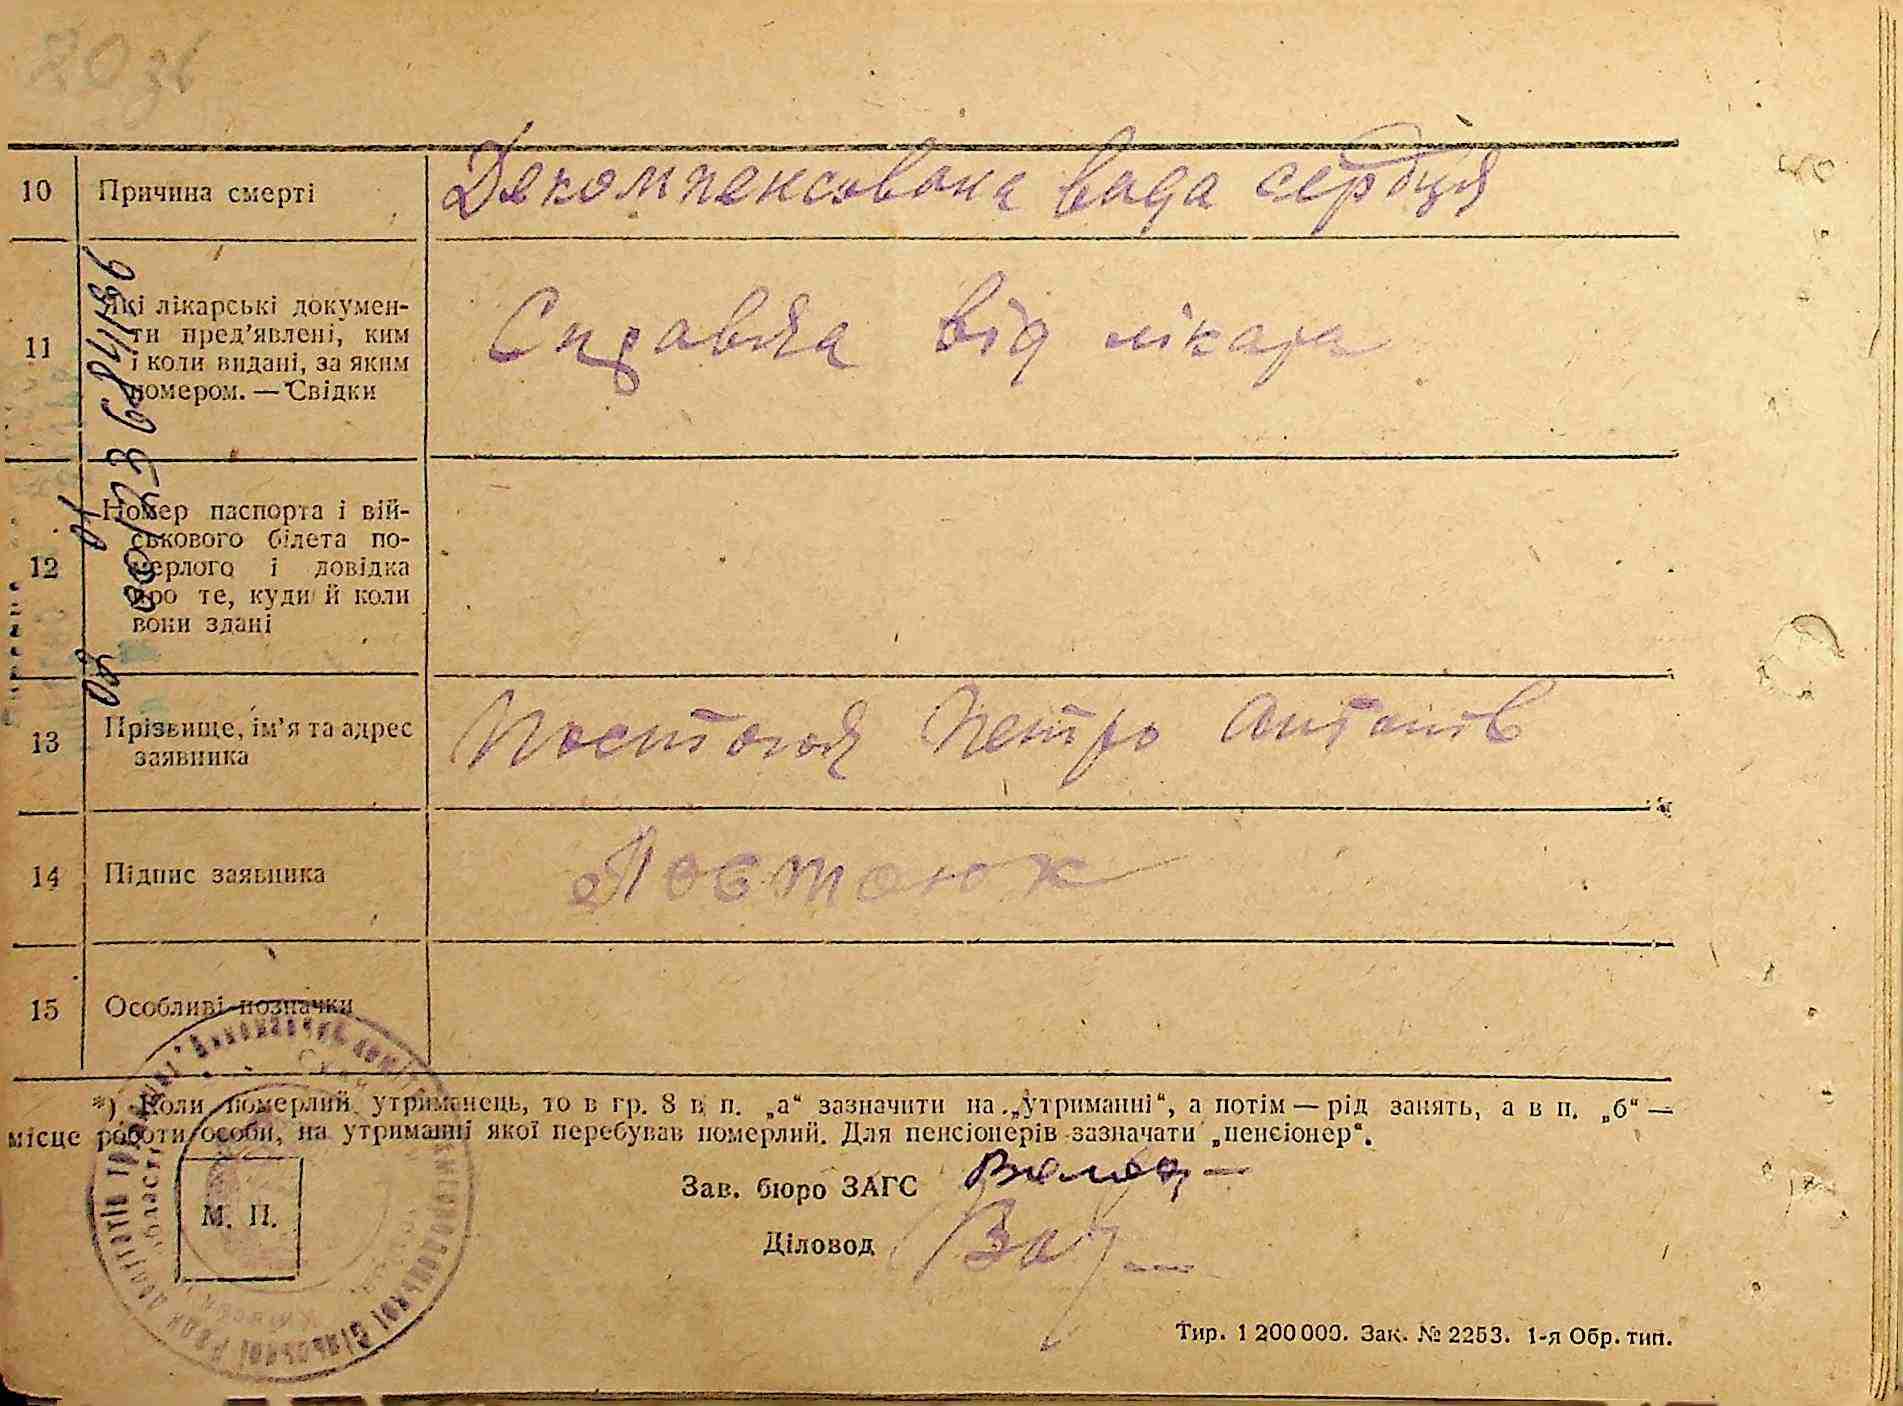 70 зв
10 Причина смерті Декомпенсована вада сердця
11 Які лікарські докумен-
ти пред'явлені, ким
і коли видані, за яким
номером. — Свідки
Справка від лікаря
12 Номер паспорта і вій-
ськового білета по-
мерлого і довідка
про те, куди й коли
вони здані
13 Прізвище, ім'я та адрес
заявника
Петро
14 Підпис заявника Постоюк
15 Особливі позначки
*) Коли померлий утриманець, то в гр. 8 в п. „а“ зазначити на „утриманні“, а потім — рід занять, а в п. „б“ —
місце роботи особи, на утриманні якої перебував померлий. Для пенсіонерів зазначати „пенсіонер“.
Зав. бюро ЗАГС
М. П.
Діловод
Тир. 1 200 000. Зак. № 2253. 1-я Обр. тип.